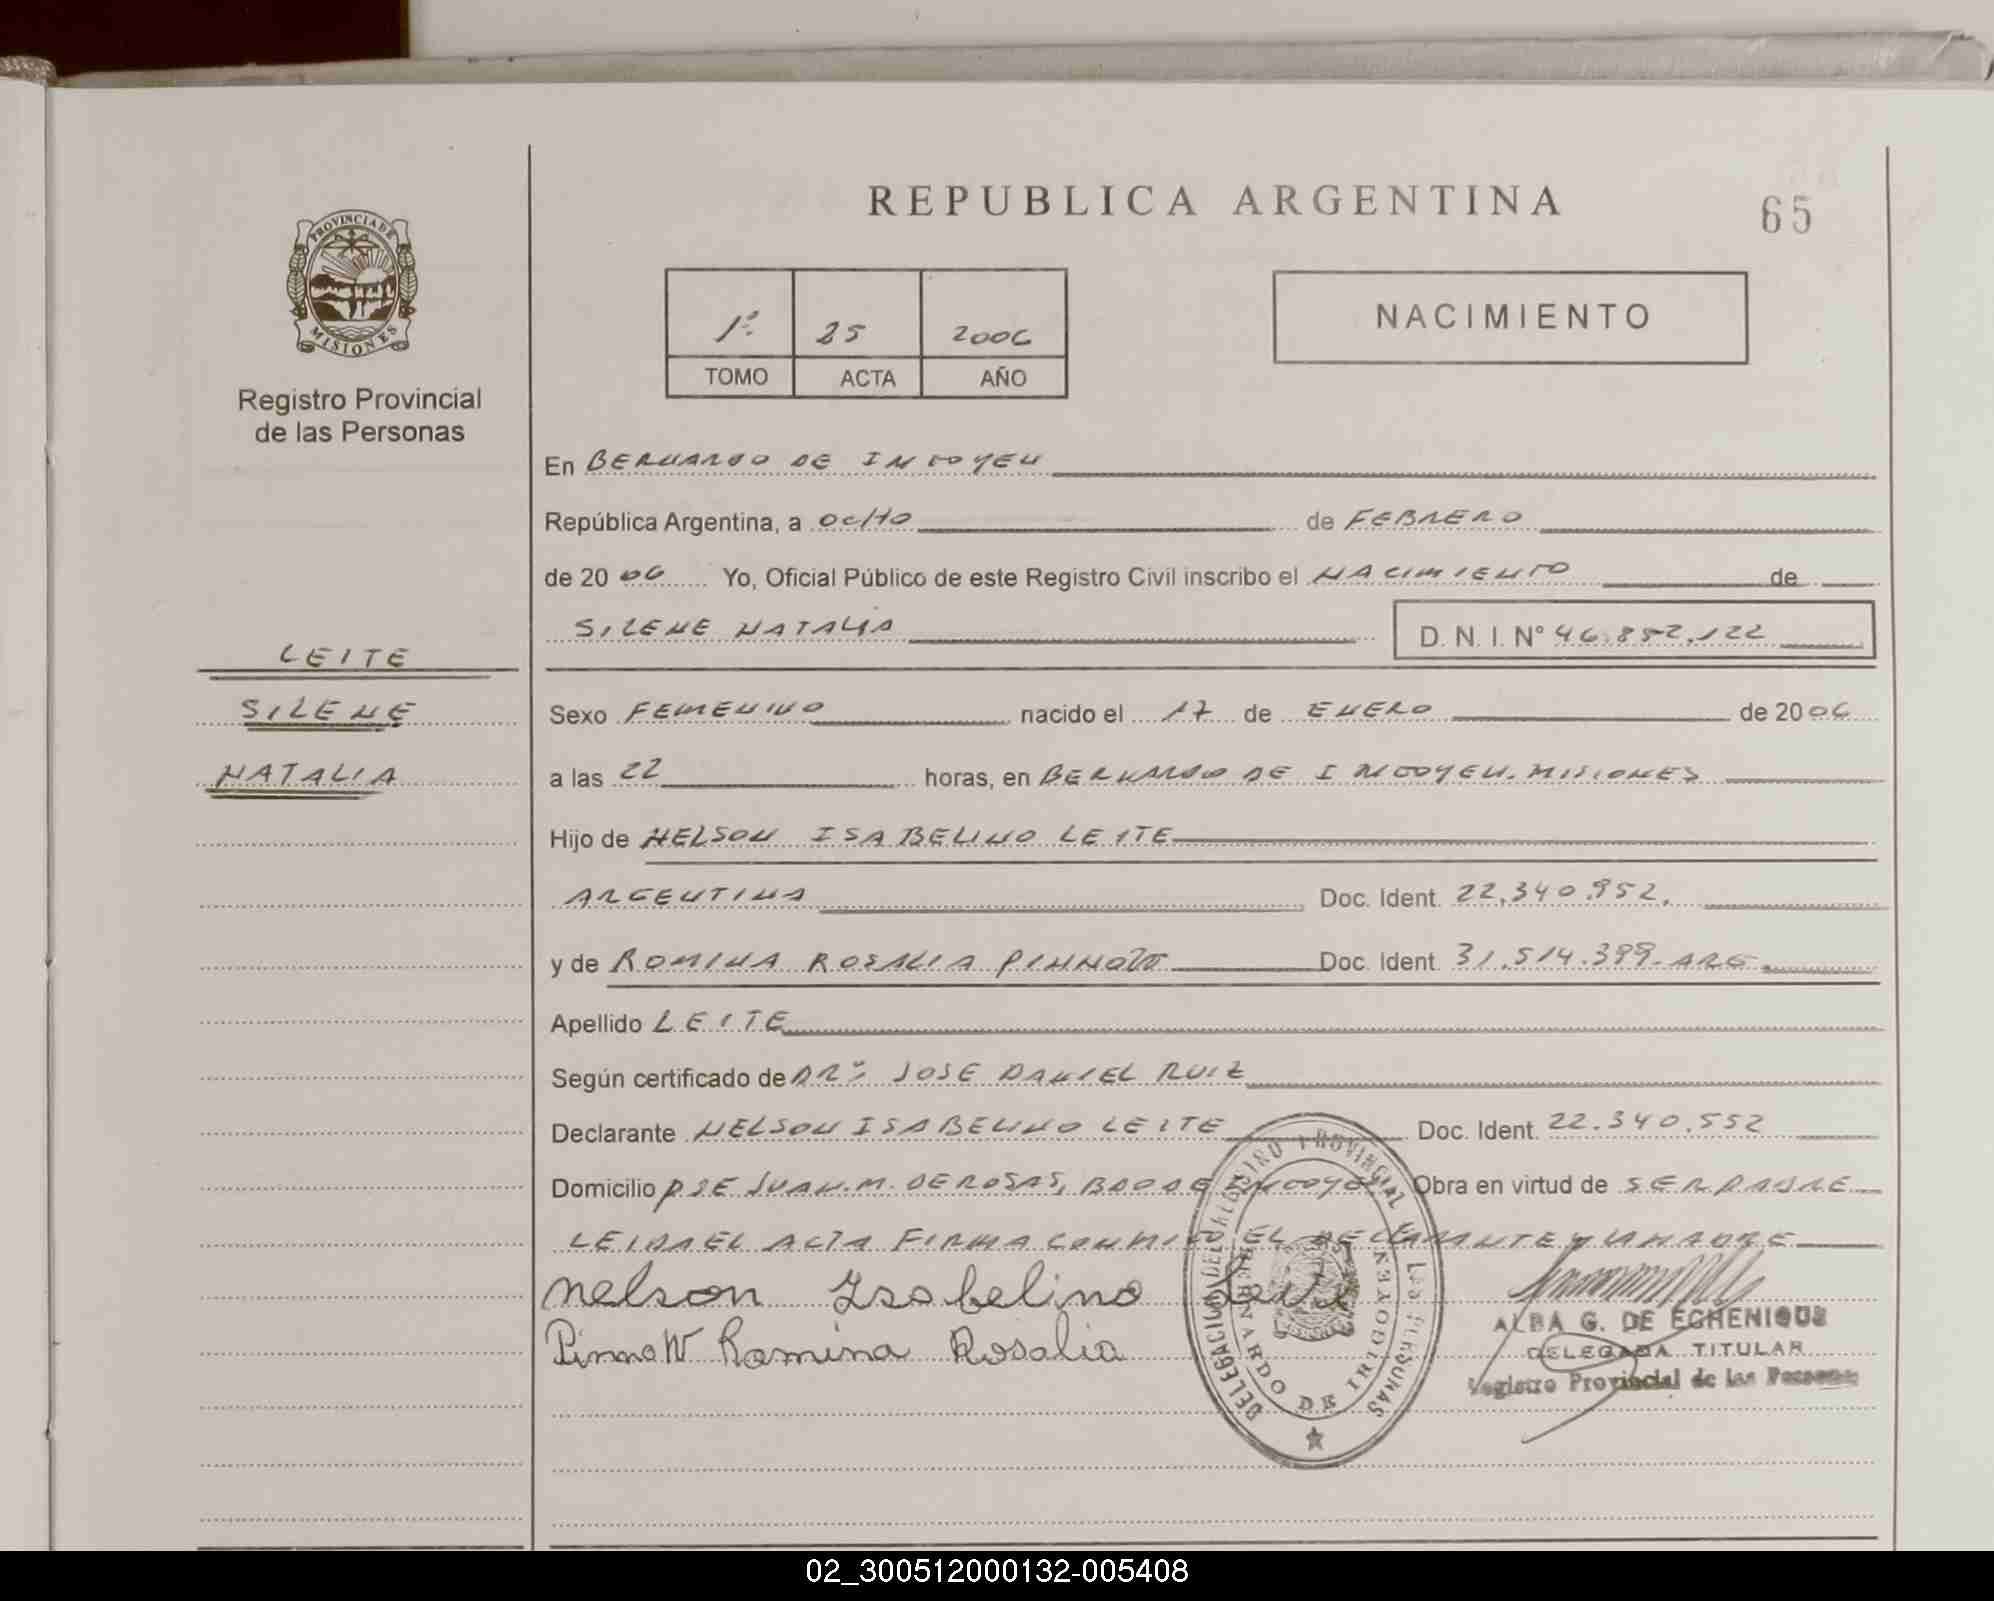 REPUBLICA ARGENTINA
65
PROVINCIA DE
MISIONES
Registro Provincial
de las Personas
1º 25 2006
TOMO ACTA AÑO
NACIMIENTO
En BERNARDO DE IRIGOYEN
República Argentina, a OCHO de FEBRERO
de 20 06 Yo, Oficial Público de este Registro Civil inscribo el NACIMIENTO de
SILENE NATALIA D. N. I. Nº 46.852.122
LEITE
SILENE
NATALIA
Sexo FEMENINO nacido el 17 de ENERO de 20 06
a las 22 horas, en BERNARDO DE IRIGOYEN. MISIONES
Hijo de NELSON ISABELINO LEITE
ARGENTINA Doc. Ident. 22.340.952.
y de ROMINA ROSALIA PINNOW Doc. Ident. 31.514.399. ARG.
Apellido LEITE
Según certificado de DR. JOSE DANIEL RUIZ
Declarante NELSON ISABELINO LEITE Doc. Ident. 22.340.552
Domicilio PJE JUAN. M. DE ROSAS, BDO DE IRIGOYEN Obra en virtud de SER PADRE
LEIDA EL ACTA FIRMA CONMIGO EL DECLARANTE Y LA MADRE
Nelson Isabelino Leite
Pinnow Romina Rosalia
DELEGACION DEL REGISTRO PROVINCIAL DE LAS PERSONAS
BERNARDO DE IRIGOYEN
ALBA G. DE ECHENIQUE
DELEGADA TITULAR
Registro Provincial de las Personas
02_300512000132-005408